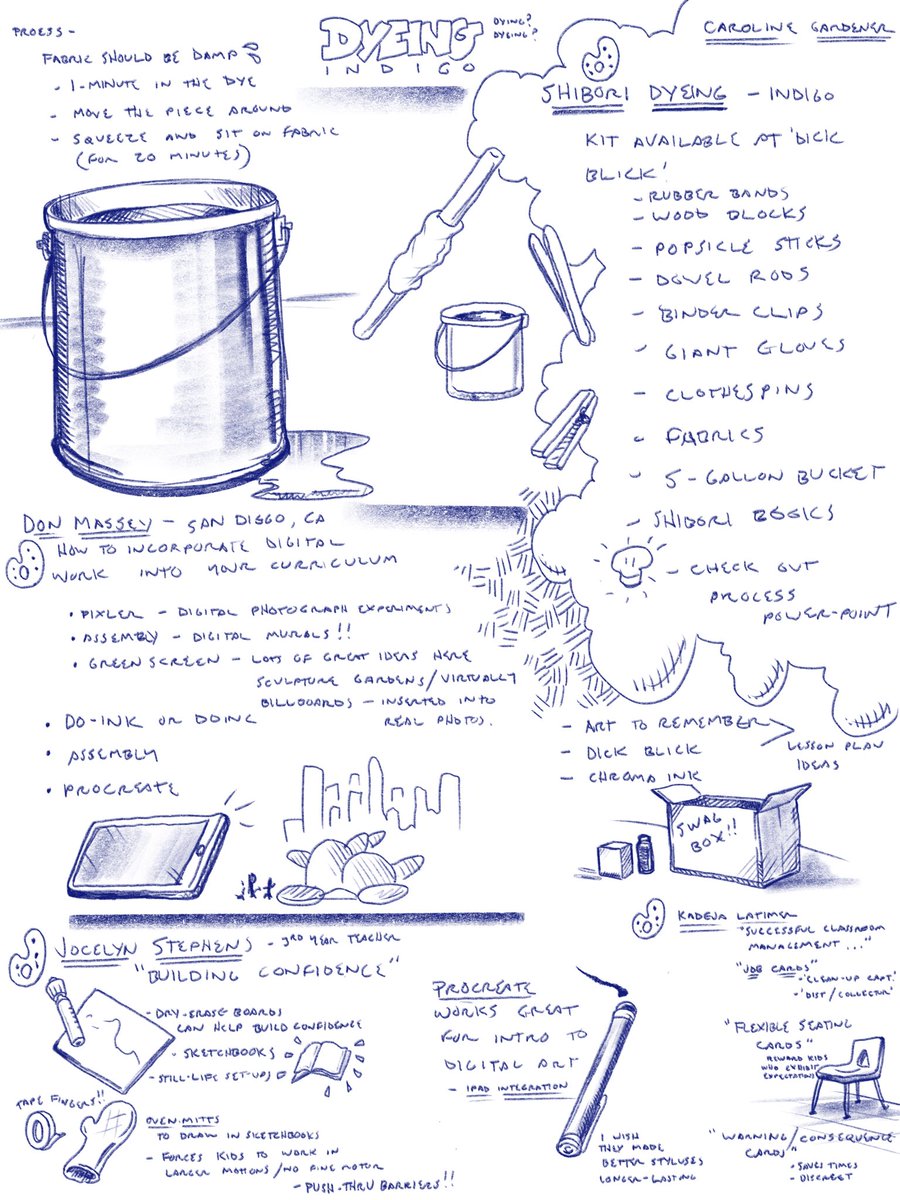 PROESS -
FABRIC SHOULD BE DAMP
- 1-MINUTE IN THE DYE
- MOVE THE PIECE AROUND
- SQUEEZE AND SIT ON FABRIC
(FOR 20 MINUTES)
DYEING
INDIGO
DYING?
DYEING?
CAROLINE GARDENER
SHIBORI DYEING - INDIGO
KIT AVAILABLE AT 'DICK
BLICK'
- RUBBER BANDS
- WOOD BLOCKS
- POPSICLE STICKS
- DOWEL RODS
- BINDER CLIPS
- GIANT GLOVES
- CLOTHESPINS
- FABRICS
- 5-GALLON BUCKET
- SHIBORI BOOKS
- CHECK OUT
PROCESS
POWER-POINT
DON MASSEY - SAN DIEGO, CA
HOW TO INCORPORATE DIGITAL
WORK INTO YOUR CURRICULUM
• PIXLER - DIGITAL PHOTOGRAPH EXPERIMENTS
• ASSEMBLY - DIGITAL MURALS!!
• GREEN SCREEN - LOTS OF GREAT IDEAS HERE
SCULPTURE GARDENS/VIRTUALLY
BILLBOARDS - INSERTED INTO
REAL PHOTOS.
• DO-INK OR DOINC
• ASSEMBLY
• PROCREATE
- ART TO REMEMBER
- DICK BLICK
- CHROMA INK
LESSON PLAN
IDEAS
SWAG
BOX!!
JOCELYN STEPHENS - 3RD YEAR TEACHER
"BUILDING CONFIDENCE"
- DRY-ERASE BOARDS
CAN HELP BUILD CONFIDENCE
- SKETCHBOOKS
- STILL-LIFE SET-UPS
TAPE FINGERS!!
OVEN-MITTS
TO DRAW IN SKETCHBOOKS
- FORCES KIDS TO WORK IN
LARGER MOTIONS/NO FINE MOTOR
- PUSH-THRU BARRIERS!!
PROCREATE
WORKS GREAT
FOR INTRO TO
DIGITAL ART
- IPAD INTEGRATION
I WISH
THEY MADE
BETTER STYLUSES
LONGER-LASTING
KADEJA LATIMER
"SUCCESSFUL CLASSROOM
MANAGEMENT..."
"JOB CARDS"
- 'CLEAN-UP CAPT.'
- 'DIST/COLLECTOR'
"FLEXIBLE SEATING
CARDS"
REWARD KIDS
WHO EXHIBIT
EXPECTATIONS
"WARNING/CONSEQUENCE
CARDS"
- SAVES TIMES
- DISCREET